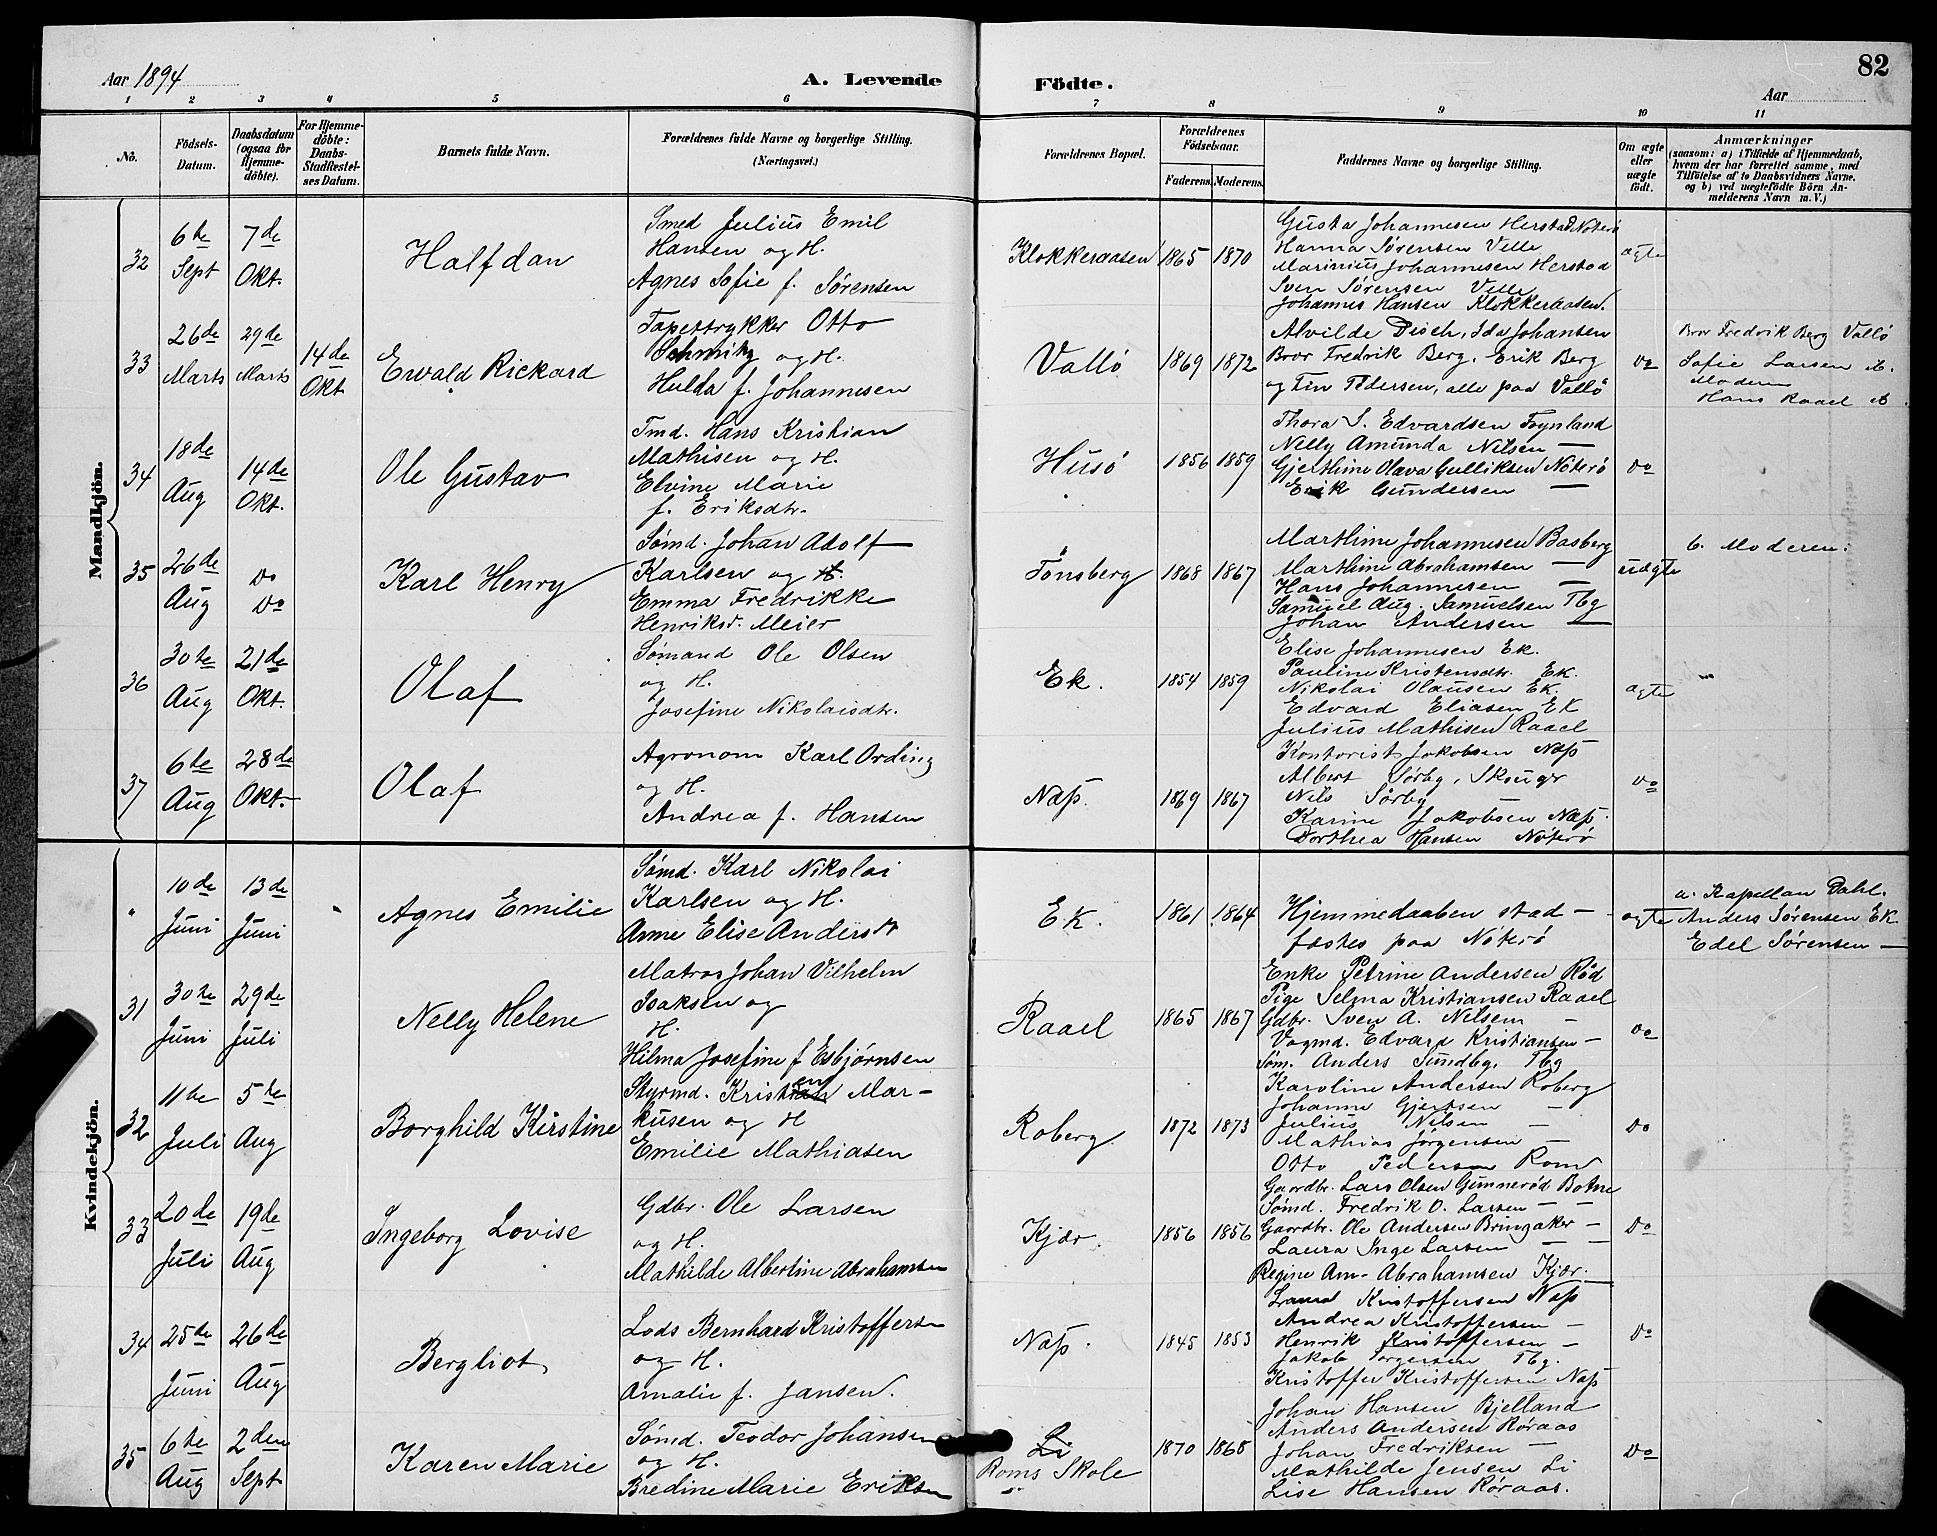 82
Aar 1894
A. Levende
Födte.
Aar
1 2 3 4 5 6 7 8 9 10 11
No.
Födsels-
Datum.
Daabsdatum
(ogsaa for
Hjemme-
döbte).
For Hjemme-
döbte:
Daabs-
Stadfæstel-
ses Datum.
Barnets fulde Navn.
Forældrenes fulde Navne og borgerlige Stilling.
(Næringsvei.)
Forældrenes Bopæl.
Forældrenes
Födselsaar.
Faderens.
Moderens.
Faddernes Navne og borgerlige Stilling.
Om ægte
eller
uægte
födt.
Anmærkninger
(saasom: a) i Tilfælde af Hjemmedaab,
hvem der har forrettet samme, med
Tilföielse af to Daabsvidners Navne.
og b) ved uægtefödte Börn An-
melderens Navn m. V.)
Mandkjön.
32
6te
Sept
7de
Okt.
Halfdan
Smed Julius Emil
Hansen og H.
Agnes Sofie f. Sørensen
Klokkeraasen
1865
1870
Gusta Johannesen Herstad Nøterø
Hanna Sørensen Velle
Marinius Johannesen Herstad
Sven Sørensen Velle
Johannes Hansen Klokkeraasen.
ægte
33
26de
Marts
29de
Marts
14de
Okt
Ewald Rickard
Tapettrykker Otto
Schmitz og H.
Hulda f. Johannesen
Vallö
1869
1872
Alvilde Disch, Ida Johansen
Bror Fredrik Berg, Erik Berg
og Tin Pedersen, alle paa Vallö
Do
Bror Fredrik Berg Vallö
Sofie Larsen
Moderen
Hans Raael
34
18de
Aug
14de
Okt.
Ole Gustav
Tmd. Hans Kristian
Mathisen og H.
Elvine Marie
f. Eriksdtr.
Husö
1856
1859
Thora S. Edvardsen Foynland
Nelly Amunda Nilsen —
Gjerthine Olava Gulliksen Nöterö
Erik Gundersen —
Do
35
26de
Aug
Do
Do
Karl Henry
Sømd. Johan Adolf
Karlsen og H.
Emma Fredrikke
Henriksd. Meier
Tönsberg
1868
1867
Marthine Johannesen Basberg
Marthine Abrahamsen —
Hans Johannesen —
Samuel Aug. Samuelsen Tbg
Johan Andersen —
uægte
b. Moderen.
36
30te
Aug
21de
Okt.
Olaf
Sømand Ole Olsen
og H.
Josefine Nikolaisdtr.
Ek.
1854
1859
Elise Johannesen Ek.
Pauline Kristensdtr. Ek.
Nikolai Olausen Ek.
Edvard Eliasen Ek
Julius Mathisen Raael
ægte
37
6te
Aug
28de
Okt.
Olaf
Agronom Karl Ording
og H.
Andrea f. Hansen
Næss.
1869
1867
Kontorist Jakobsen Næss
Albert Sørby, Skouger
Nils Sørby
Karine Jakobsen Næss.
Dorthea Hansen Nöterö
Do
Kvindekjön.
"
10de
Juni
13de
Juni
Agnes Emilie
Sømd. Karl Nikolai
Karlsen og H.
Anne Elise Andersdt
Ek.
1861
1864
Hjemmedaaben stad-
fæstes paa Nöterö
ægte
a. Kapellan Dahl.
Anders Sørensen Ek
Edel Sørensen —
31
30te
Juni
29de
Juli
Nelly Helene
Matros Johan Vilhelm
Isaksen og
H.
Hilma Josefine f Esbjørnsen
Raael
1865
1867
Enke Petrine Andersen Rød
Pige Selma Kristiansen Raael
Gdbr. Sven A. Nilsen —
Vogmd. Edvard Kristiansen —
Søm. Anders Sundby, Tbg
Do
32
11te
Juli
5te
Aug
Borghild Kirstine
Styrmd. Kristen Mar-
kusen og H
Emilie Mathiasen
Roberg
1872
1873
Karoline Andersen Roberg
Johanne Gjertsen —
Julius Nilsen —
Mathias Jørgensen —
Otto Pedersen Rom
Do
33
20de
Juli
19de
Aug
Ingeborg Lovise
Gdbr. Ole Larsen
og H.
Mathilde Albertine Abrahamsen
Kjær
1856
1856
Gaardbr. Lars Olsen Gunnerød Botne
Sømd. Fredrik O. Larsen — —
Gaardbr. Ole Andersen Bringaker —
Laura Inge Larsen — —
Regine Am- Abrahamsen Kjær.
Do
34
25de
Juni
26de
Aug
Bergliot
Lods Bernhard Kristoffersen
og H.
Amalie f. Jansen.
Næss.
1845
1853
Laura Kristoffersen Næss
Andrea Kristoffersen —
Henrik Kristoffersen —
Jakob Torgersen Tbg.
Kristoffer Kristoffersen Næss
Do
35
6te
Aug
2den
Sept
Karen Marie
Sømd. Teodor Johansen
og H.
Bredine Marie Eriksen
Li
Roms Skole
1870
1868
Johan Hansen Bjelland
Anders Andersen Røraas
Johan Fredriksen —
Mathilde Jensen Li
Lise Hansen Røraas.
Do